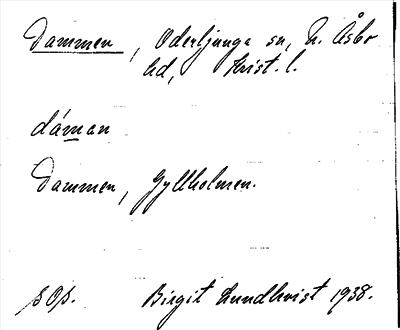 Dammen, Oderljunga sn, N. Åsbo
hd, Krist. l.
dáman
Dammen, Gyllholmen.
sOs.
Birgit Lundkvist 1938.